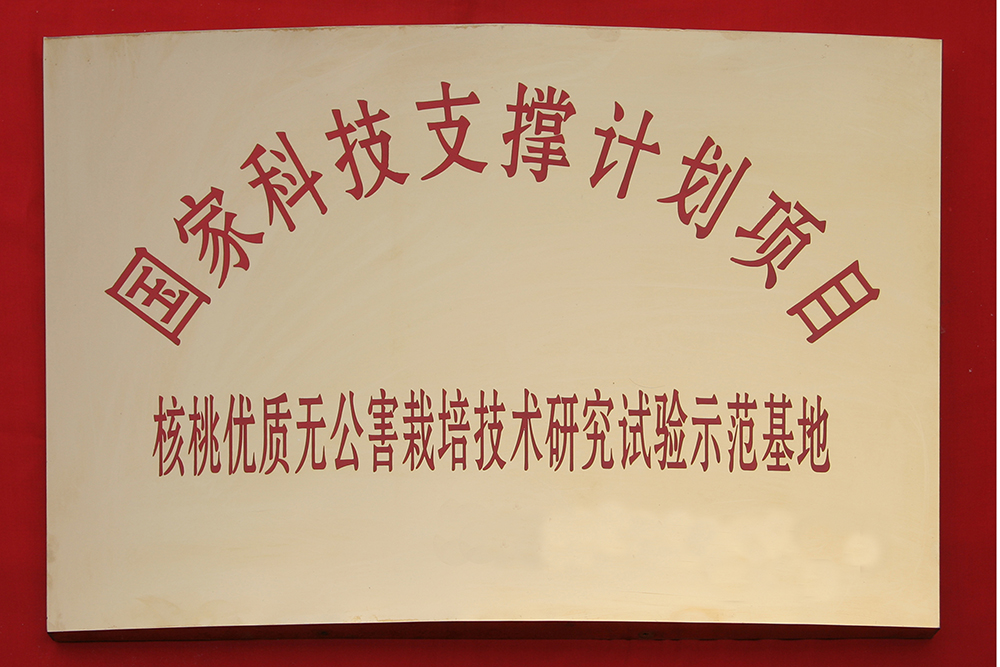 国家科技支撑计划项目
核桃优质无公害栽培技术研究试验示范基地